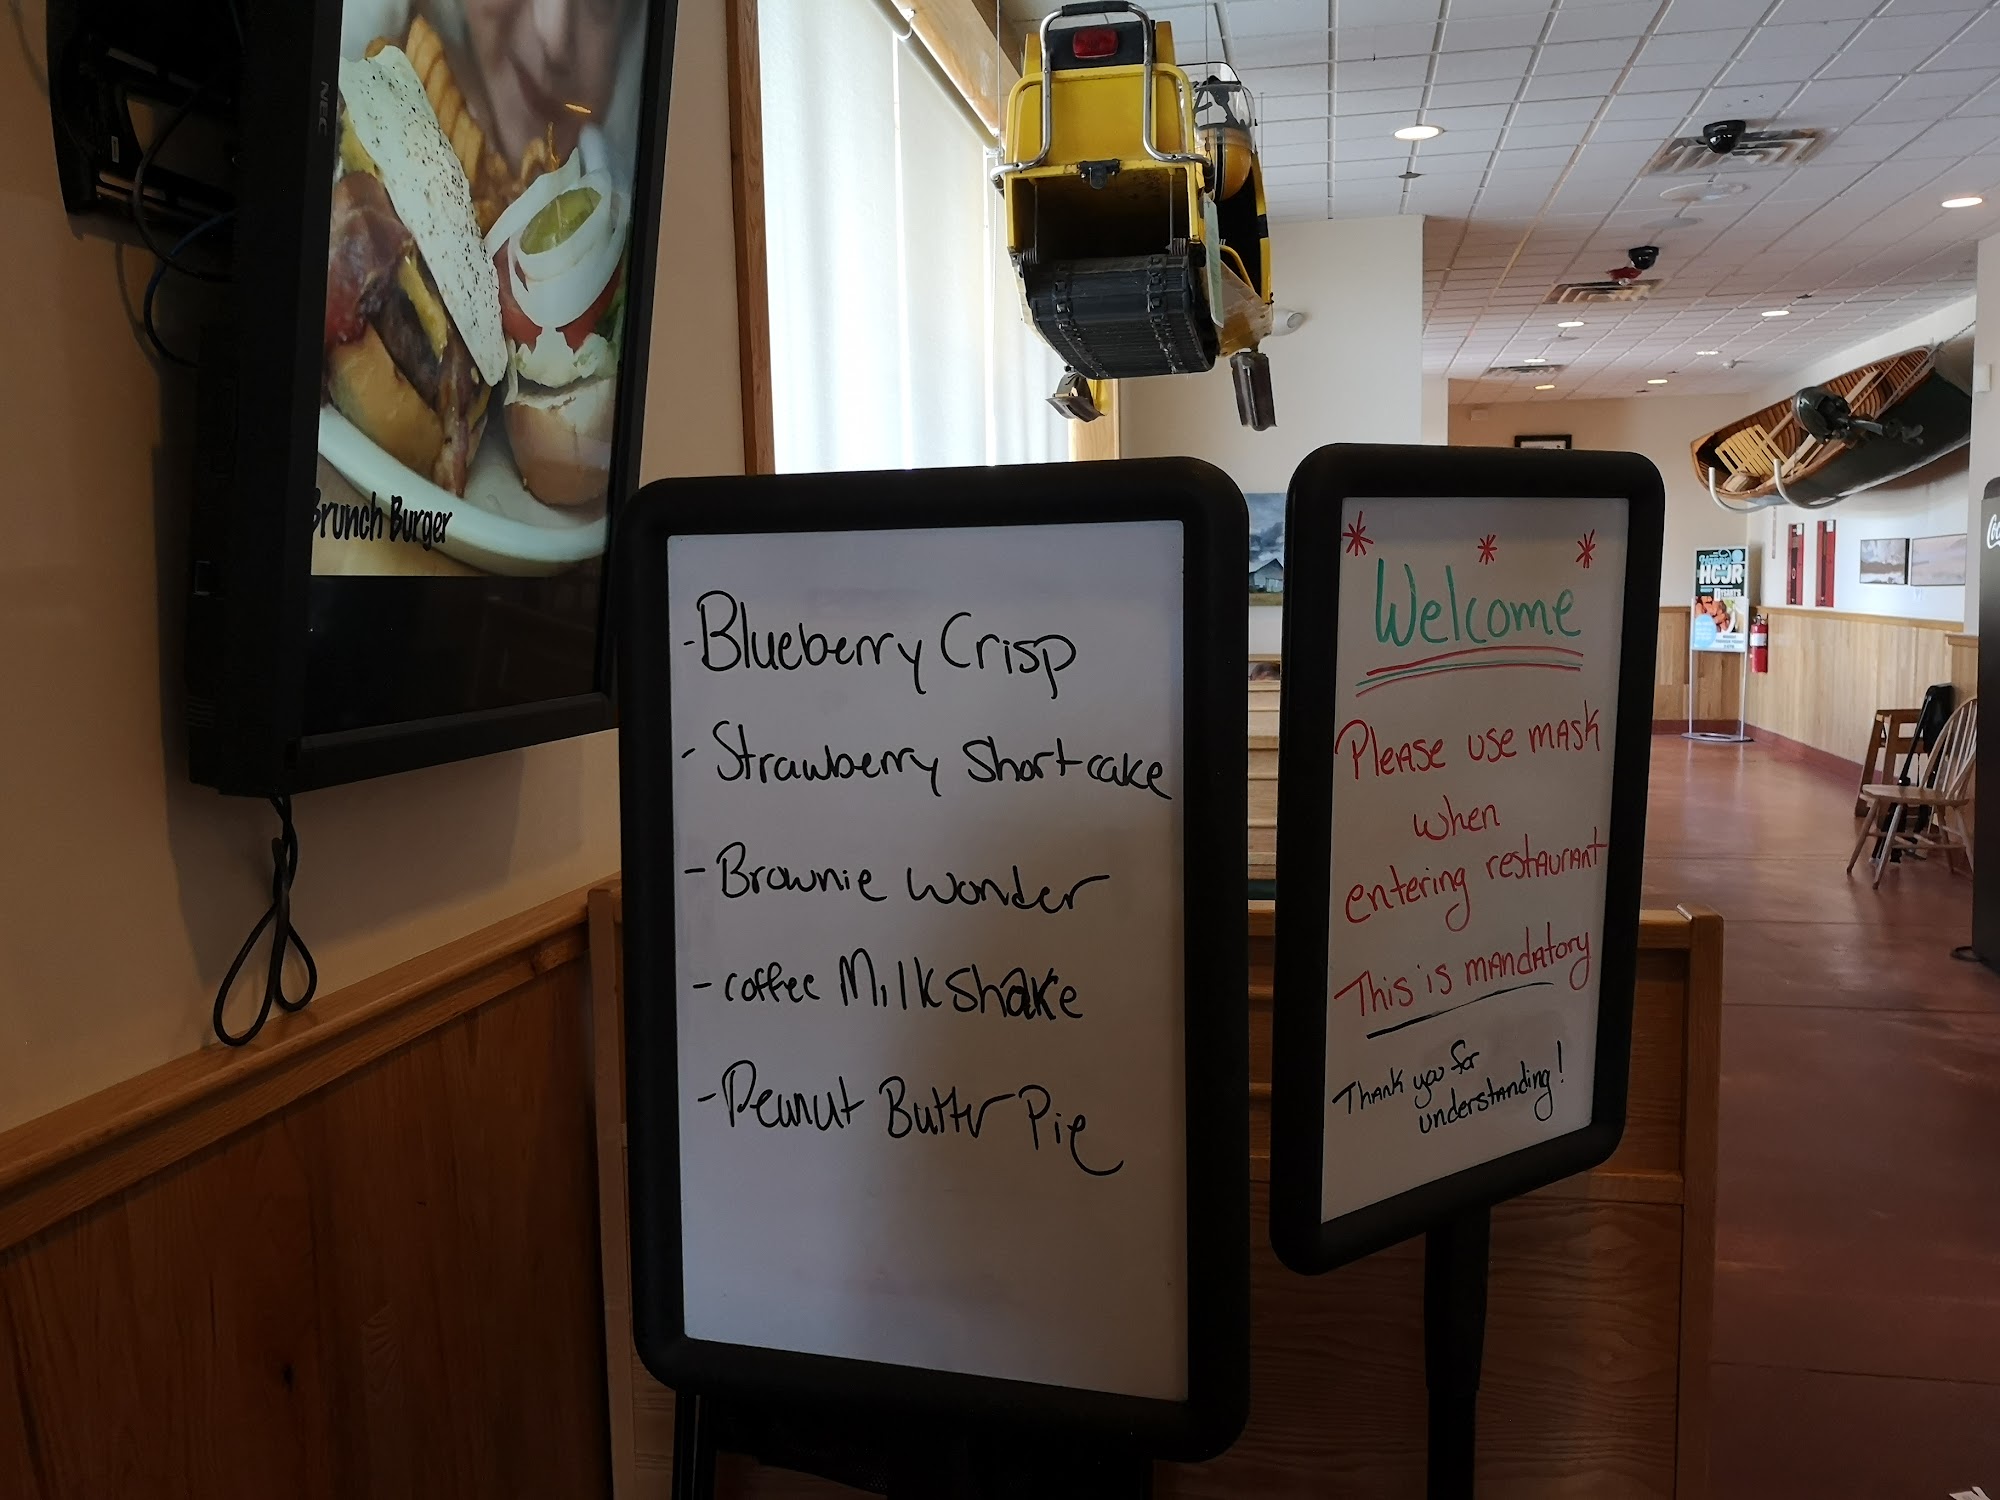 NEC
Brunch Burger
- Blueberry Crisp
- Strawberry Shortcake
- Brownie Wonder
- coffee Milkshake
- Peanut Butter Pie
Welcome
Please use mask
when
entering restaurant
This is mandatory
Thank you for
understanding!
HOUR